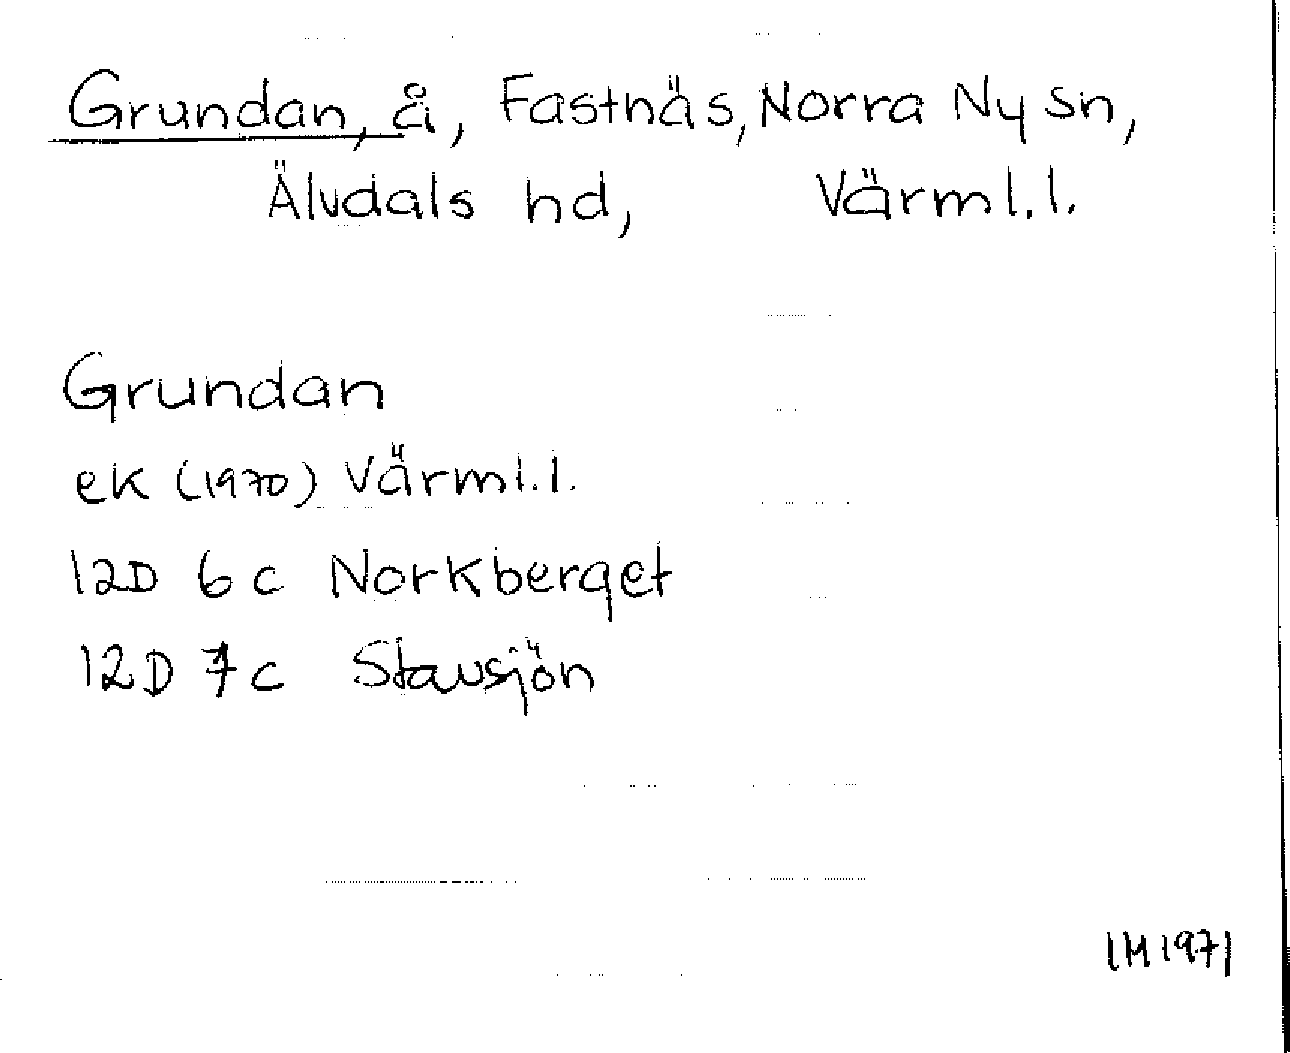 Grundan, å, Fastnäs, Norra Ny sn,
Älvdals hd, Värml.l.
Grundan
ek (1970) Värml.l.
12D 6c Norkberget
12D 7c Stavsjön
IM 1971